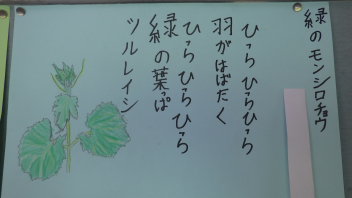 緑のモンシロチョウ
ひらひらひら
羽がはばたく
ひらひらひら
緑の葉っぱ
ツルレイシ